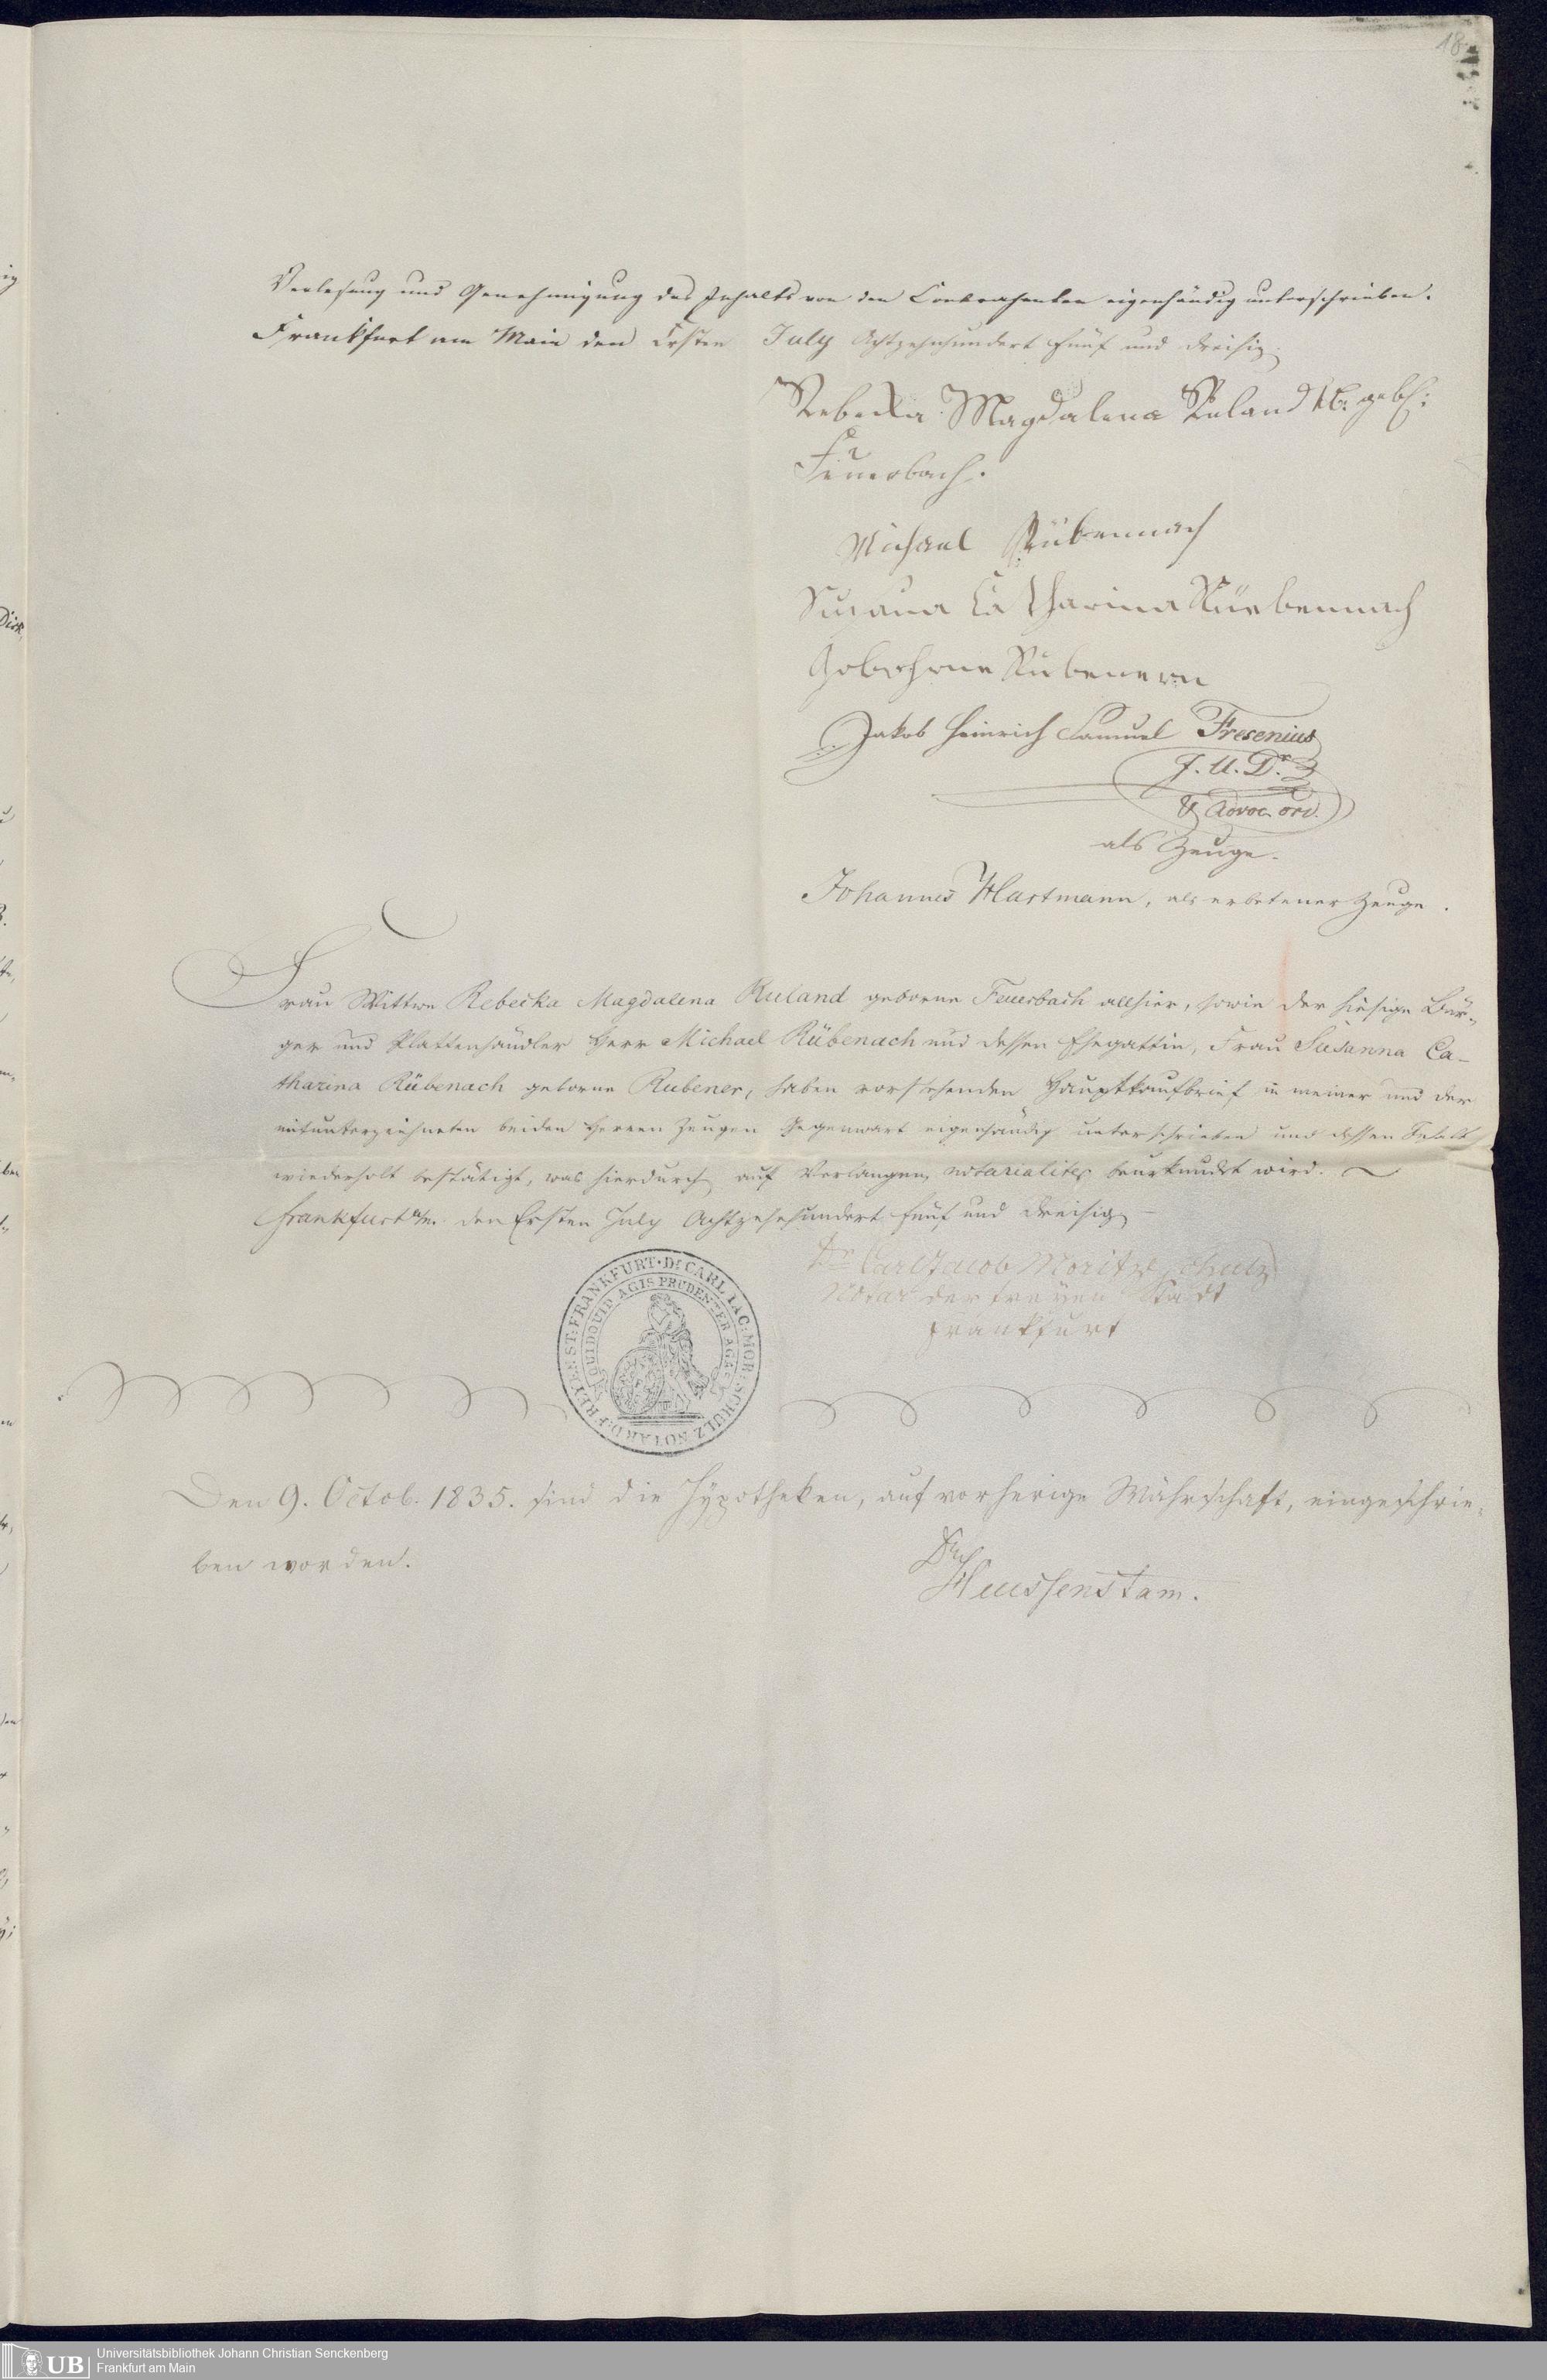 18
Verlesung und Genehmigung des Inhalts von den Contrahenten eigenhändig unterschrieben.
Frankfurt am Main den Ersten July Achtzehnhundert fünf und dreisig.
Rebecka Magdalena Ruland gebh:
Feuerbach.
Michael Rübennach
Susana Catharina Rüebennach
Gebohrne Rübenern
Jakob Heinrich Samuel Fresenius
J. U. Dr.
& Advoc. ord.
als Zeuge.
Johannes Hartmann, als erbetener Zeuge.
Frau Wittwe Rebecka Magdalena Ruland geborne Feuerbach allhier, sowie der hiesige Bür-
ger und Plattenhändler Herr Michael Rübenach und dessen Ehegattin, Frau Susanna Ca-
tharina Rübenach geborne Rubener, haben vorstehenden Hauptkaufbrief in meiner und der
mitunterzeichneten beiden Herren Zeugen Gegenwart eigenhändig unterschrieben und dessen Inhalt
wiederholt bestätigt, was hierdurch auf Verlangen notarialiter beurkundet wird.
Frankfurt a/m. den Ersten July Achtzehnhundert fünf und dreisig
Dr Carl Jacob Moritz Schulz
Notar der freyen Stadt
Frankfurt
DR CARL IAC: MOR: SCHULZ NOTAR D: FREYEN ST: FRANKFURT
QUIDQUID AGIS PRUDENTER AGAS
Den 9. Octob. 1835. sind die Hypotheken, auf vorherige Währschaft, eingeschrie-
ben worden.
Dr
Heussenstam.
UB Universitätsbibliothek Johann Christian Senckenberg
Frankfurt am Main